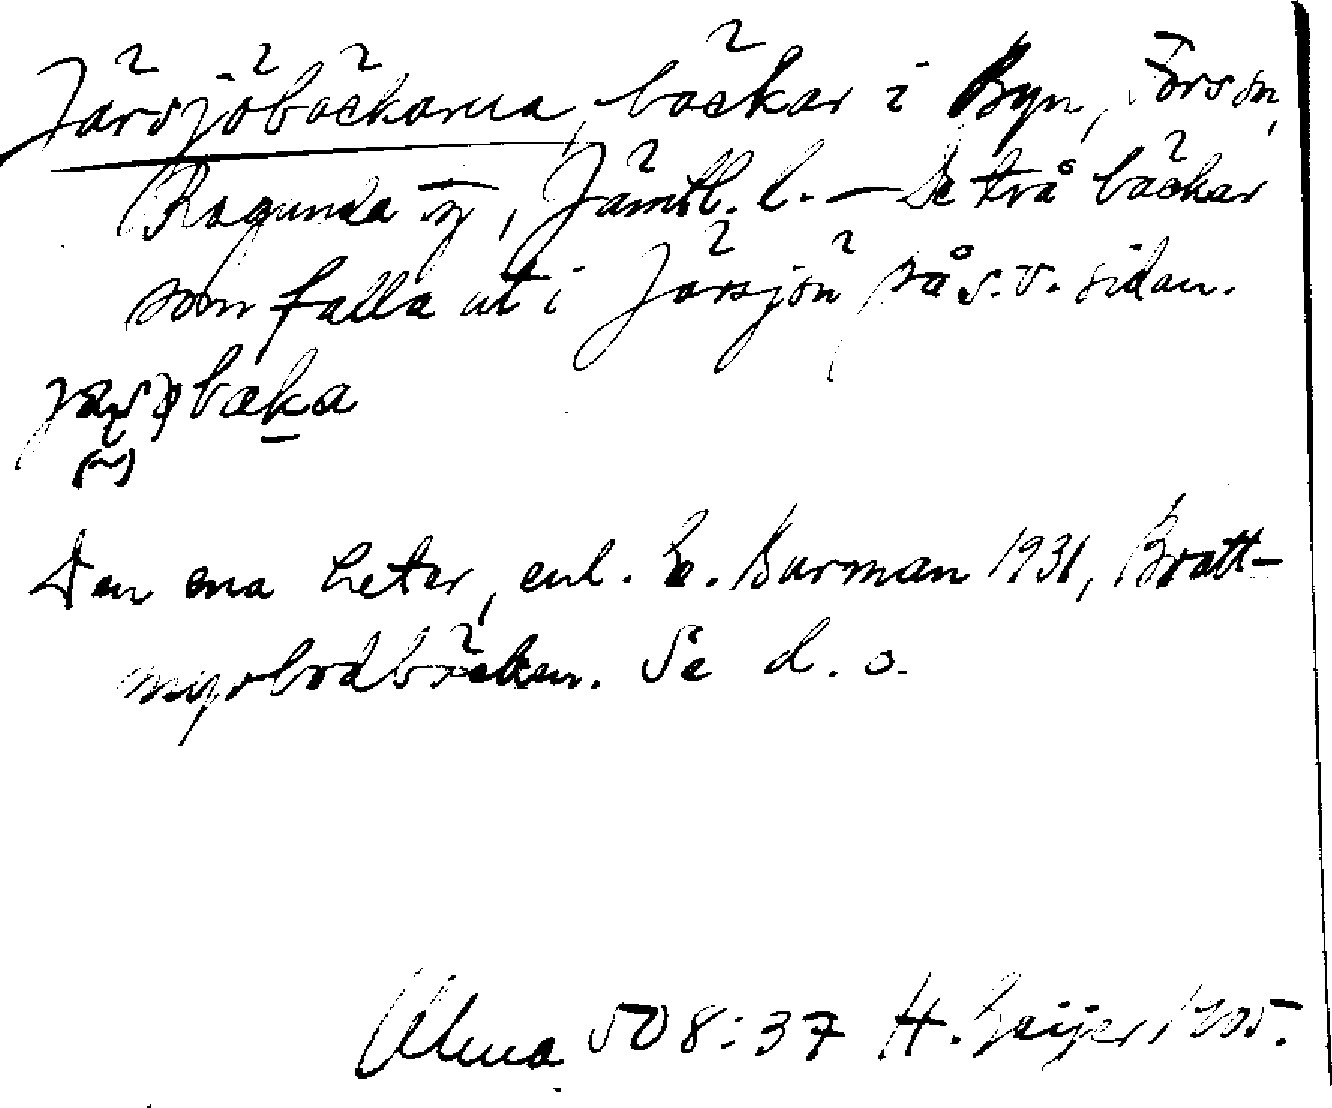 Järsjöbäckarna, bäckar i Byn, Fors sn,
Ragunda tg, Jämtl. l. — De två bäckar
som falla ut i Järsjön på s.v. sidan.
bæka
Den ena heter, enl. E. Burman 1931, Bratt-
myrbodbäcken. Se d. o.
Ulma 508:37 H. Geijer 1905.